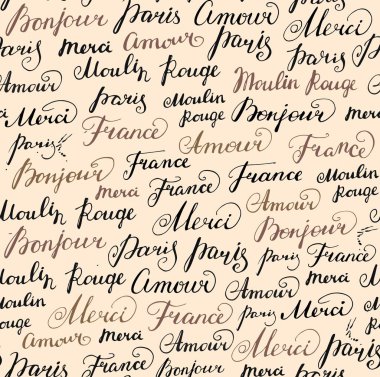 Bonjour Paris Amour
Paris Merci Amour Paris Merci
Amour Moulin Rouge Moulin Rouge
Merci Paris Moulin Rouge Bonjour Paris
Paris!! France Amour France
Bonjour France France Moulin Rouge
Merci France Amour
Moulin Rouge Merci Bonjour
Bonjour Paris Paris Paris France
Moulin Rouge Amour Amour Merci
Moulin Rouge Merci France Amour Merci
Amour Merci France Merci Paris
Paris France Bonjour